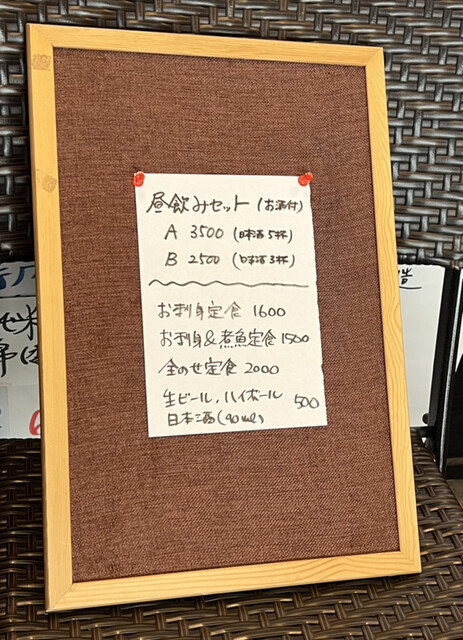 昼飲みセット (お酒付)
A 3500 (日本酒5杯)
B 2500 (日本酒3杯)
お刺身定食 1600
お刺身&煮魚定食 1500
全のせ定食 2000
生ビール、ハイボール 500
日本酒(90ml)
造